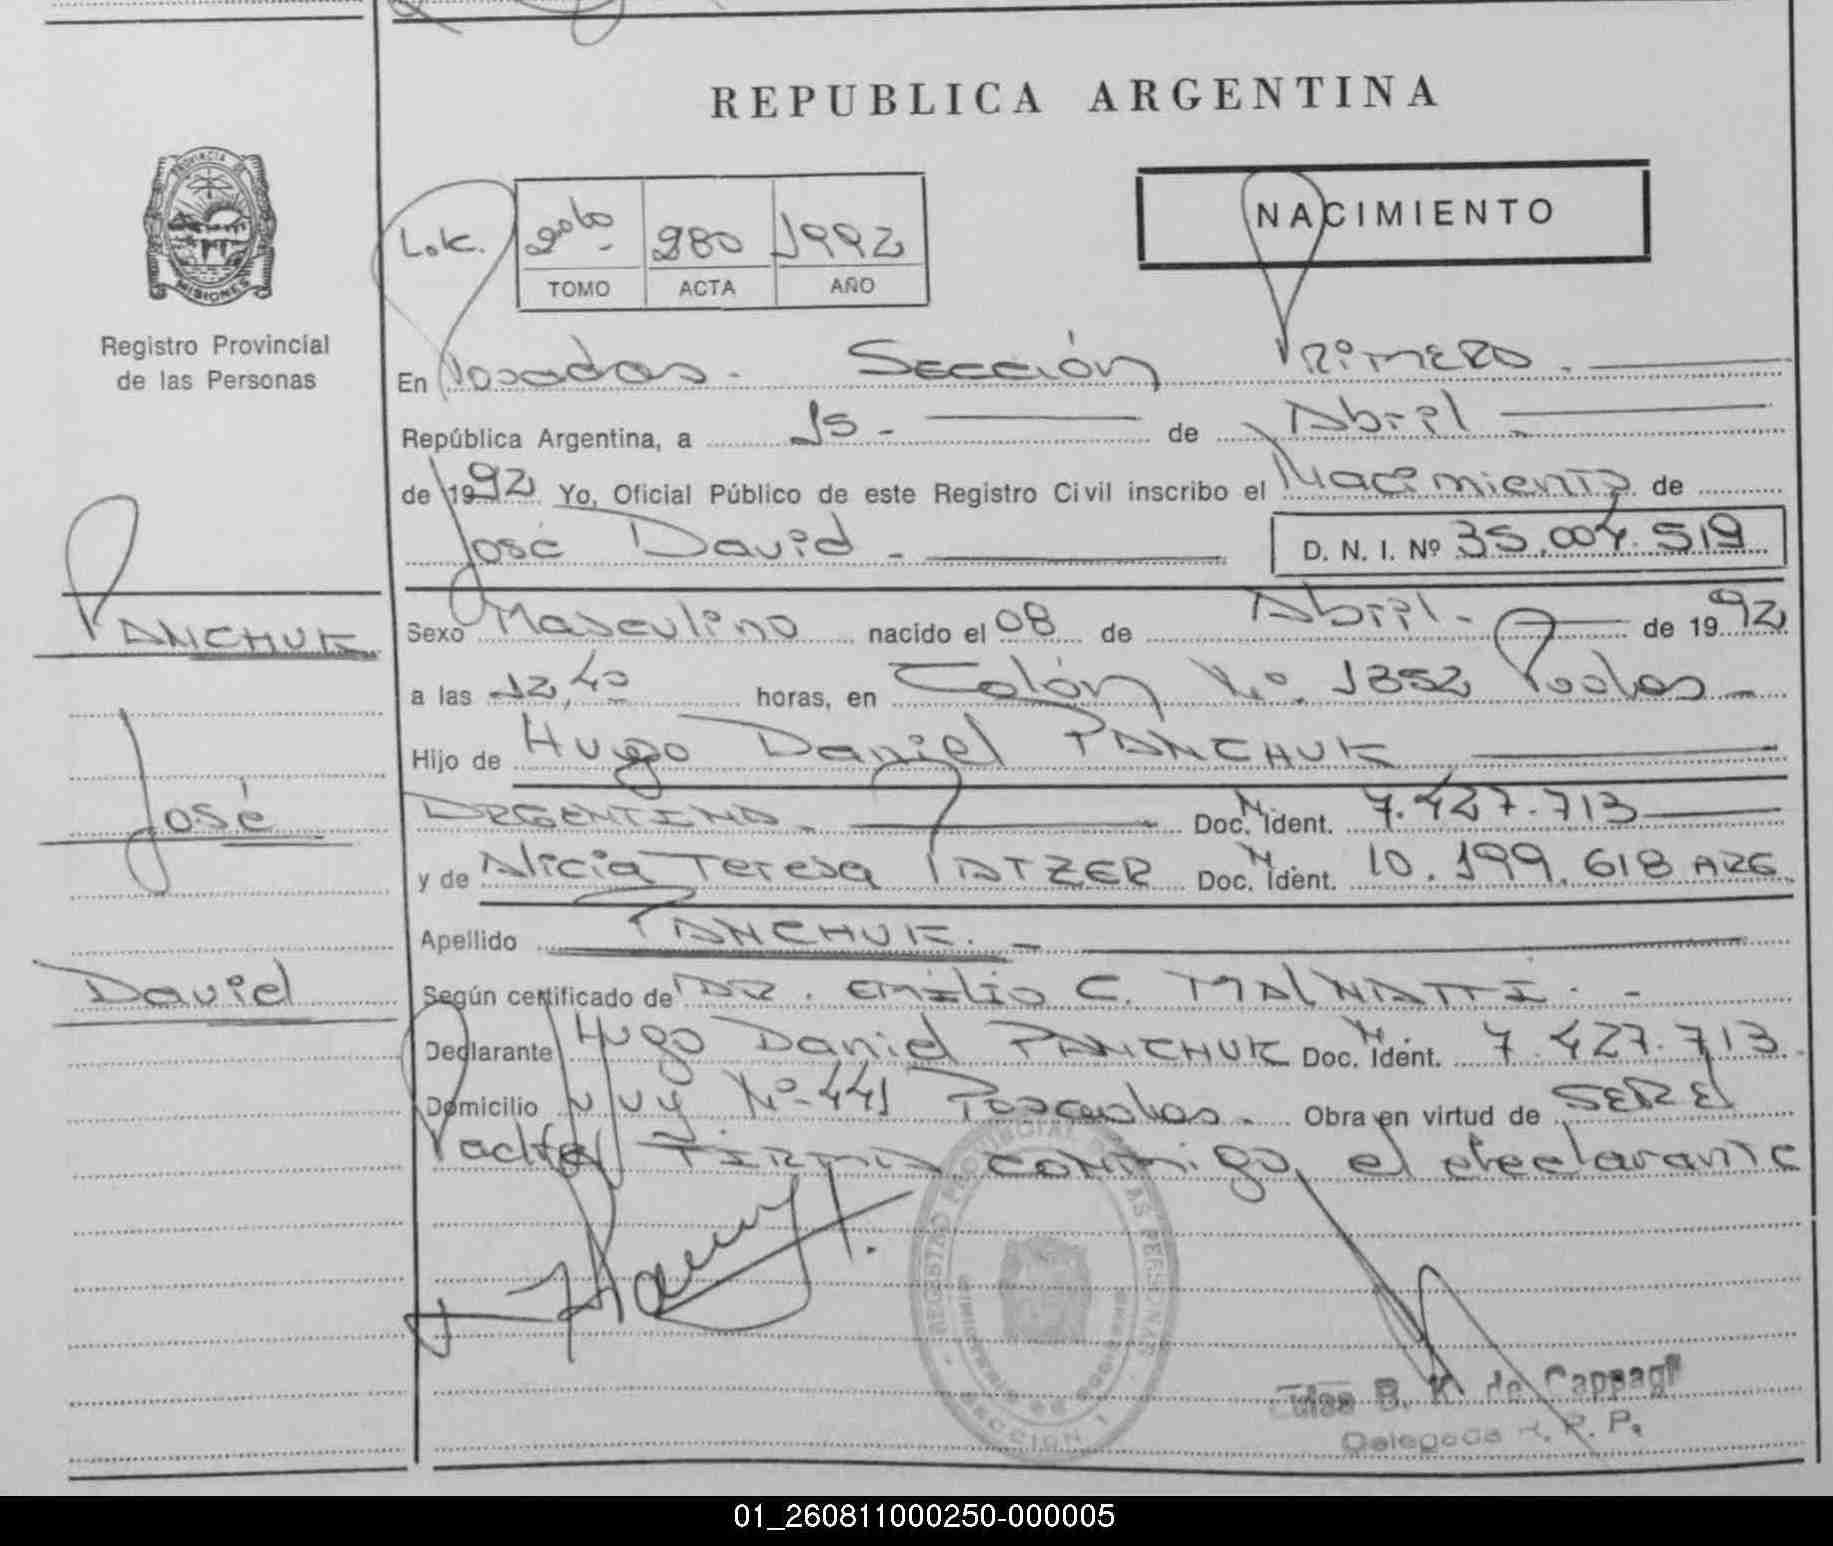 REPUBLICA ARGENTINA
PROVINCIA DE
MISIONES
Registro Provincial
de las Personas
2do 280 1992
TOMO ACTA AÑO
NACIMIENTO
En Posadas. Sección Primera.
República Argentina, a 15 - de Abril
de 1992 Yo, Oficial Público de este Registro Civil inscribo el Nacimiento de
José David - D. N. I. Nº 35.004.519
PANCHUK
José
David
Sexo Masculino nacido el 08 de Abril - de 1992
a las 12,40 horas, en Colón Nº 1352 Pdas -
Hijo de Hugo Daniel PANCHUK
ARGENTINO - Doc. N. Ident. 7.427.713
y de Alicia Teresa Doc. N. Ident. 10.199.618 ARG
Apellido PANCHUK. -
Según certificado de DR. Emilio C. MALNATTI. -
Declarante Hugo Daniel PANCHUK Doc. N. Ident. 7.427.713
Domicilio Nº 441 Posadas - Obra en virtud de SER El
Padre firma conmigo, el declarante
REGISTRO PROVINCIAL DE LAS PERSONAS
SECCION 1
B. K. de Cappagli
Delegada R. R. P.
01_260811000250-000005